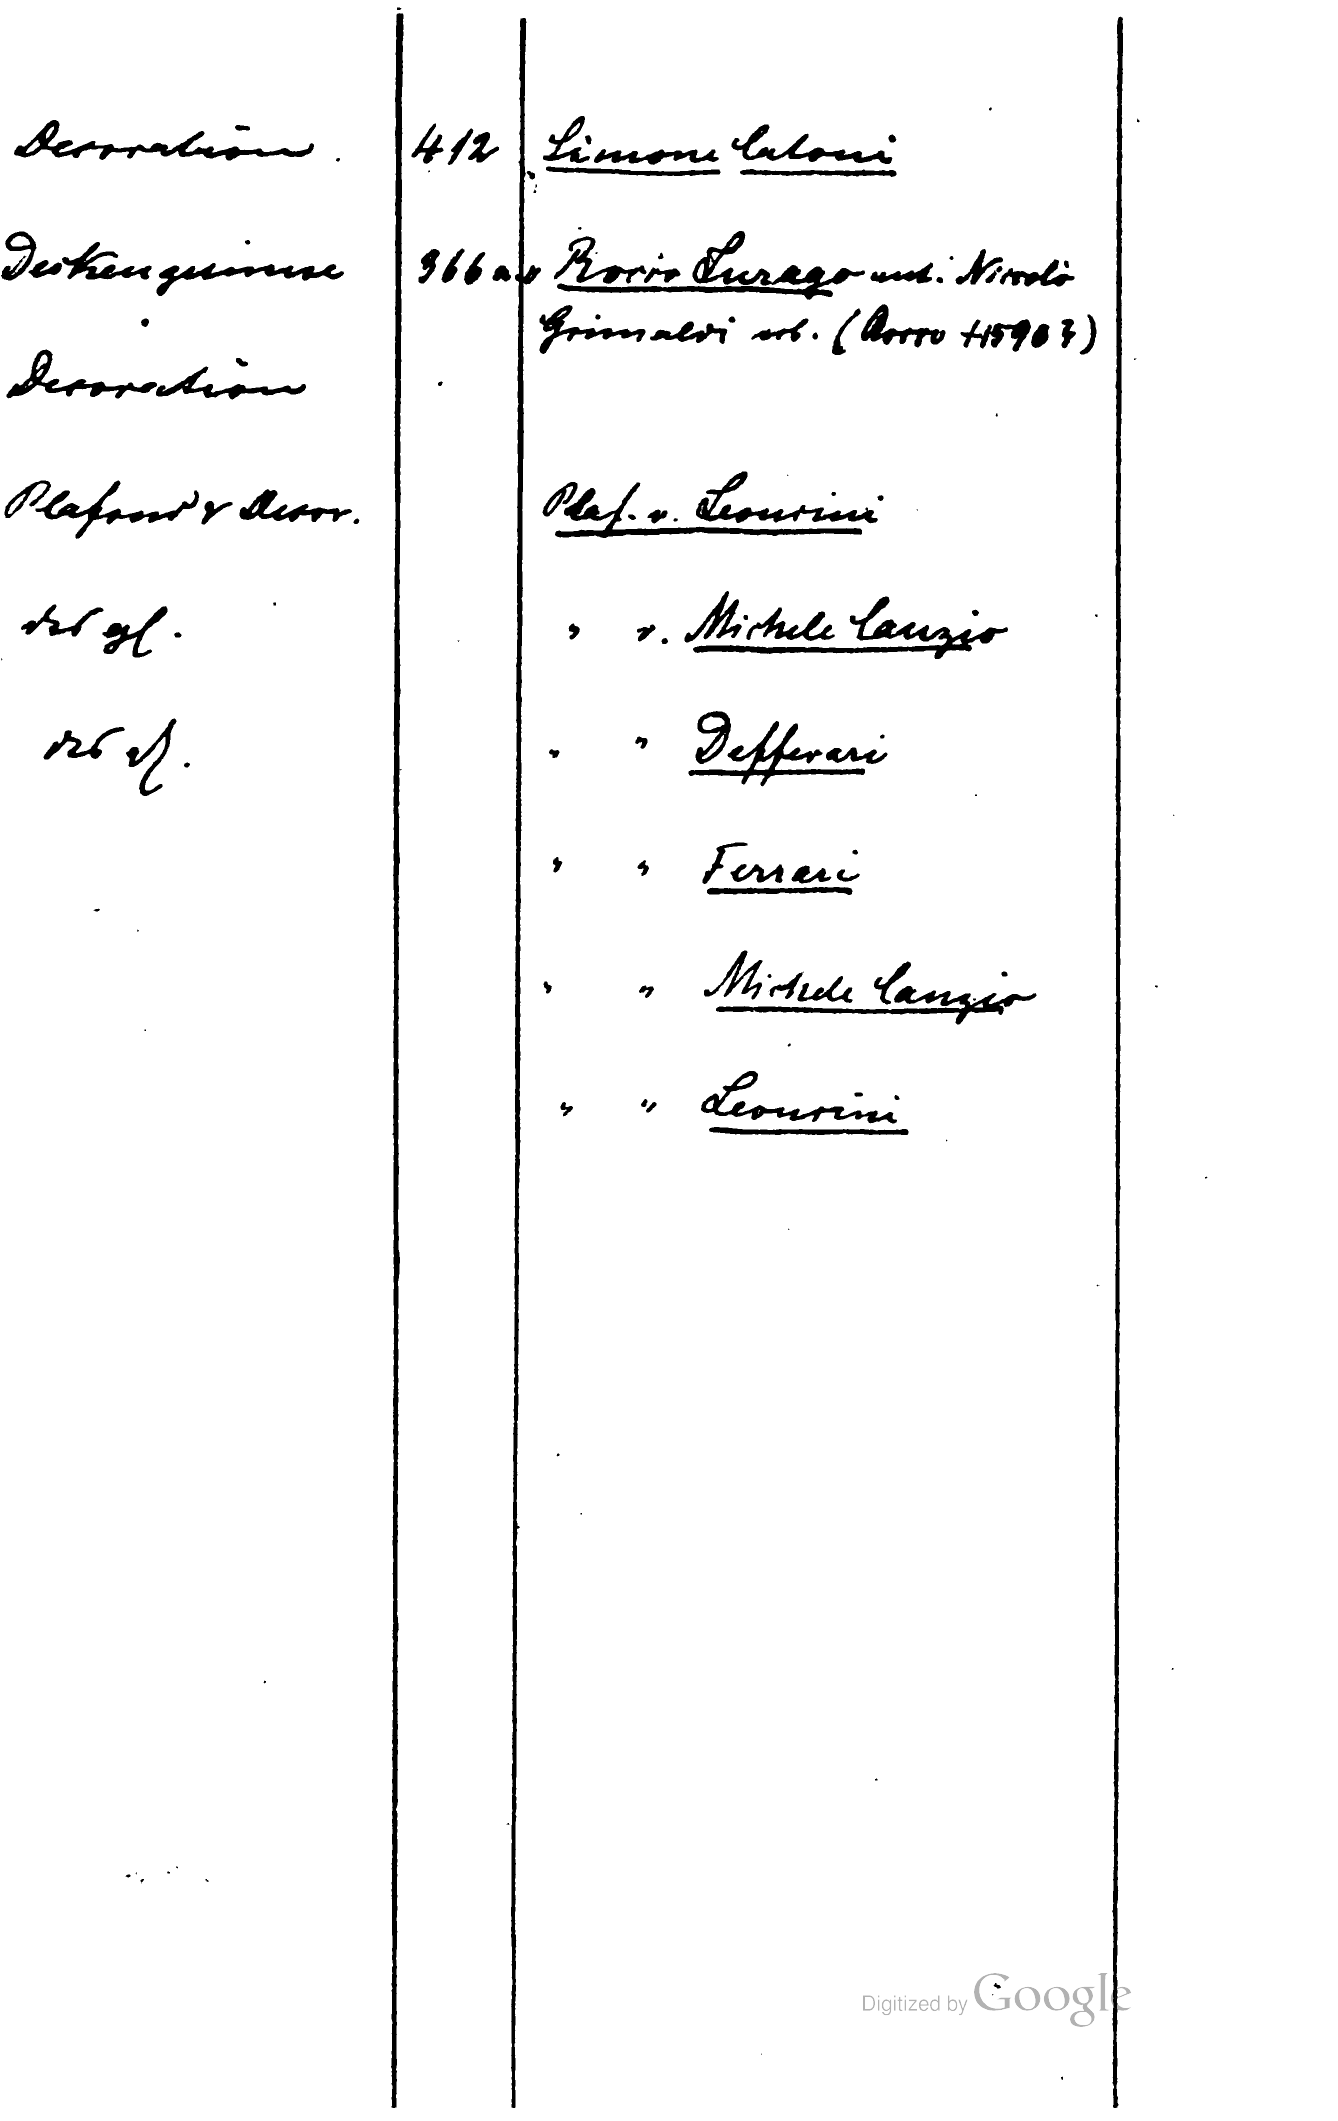 Decoration 412 Simone Catoni
Deckengesimse 366 a.v Rocco Lurago unt. Niccolò
Grimaldi erb. (Rocco †1590?)
Decoration
Plafond & Decor. Plaf. v. Leoncini
des gl. " v. Michele Canzio
des gl. " " Defferari
" " Ferrari
" " Michele Canzio
" " Leoncini
Digitized by Google